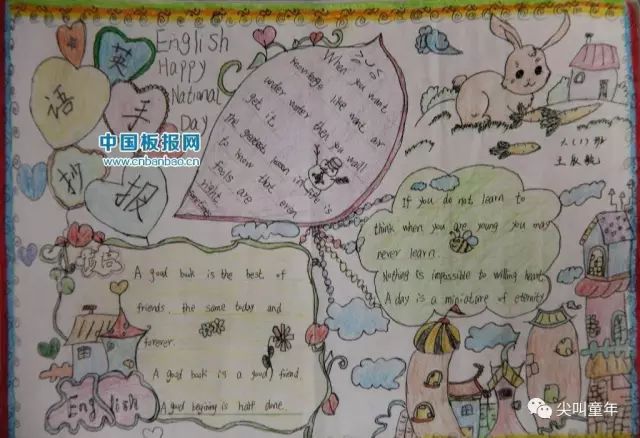 英
语
手
抄
报
English
Happy
National
Day
中国板报网
www.cnbanbao.cn
When you want
knowledge like want air
under water then you will
get it.
The greatest lesson in life is
to know that even
fools are
right
sometimes
王
If you do not learn to
think when you are young you may
never learn.
Nothing is impossible to willing heart
A day is a miniature of eternity
A good book is the best of
friends. the same today and
forever.
A good book is a good friend.
A good begining is half done.
English
尖叫童年